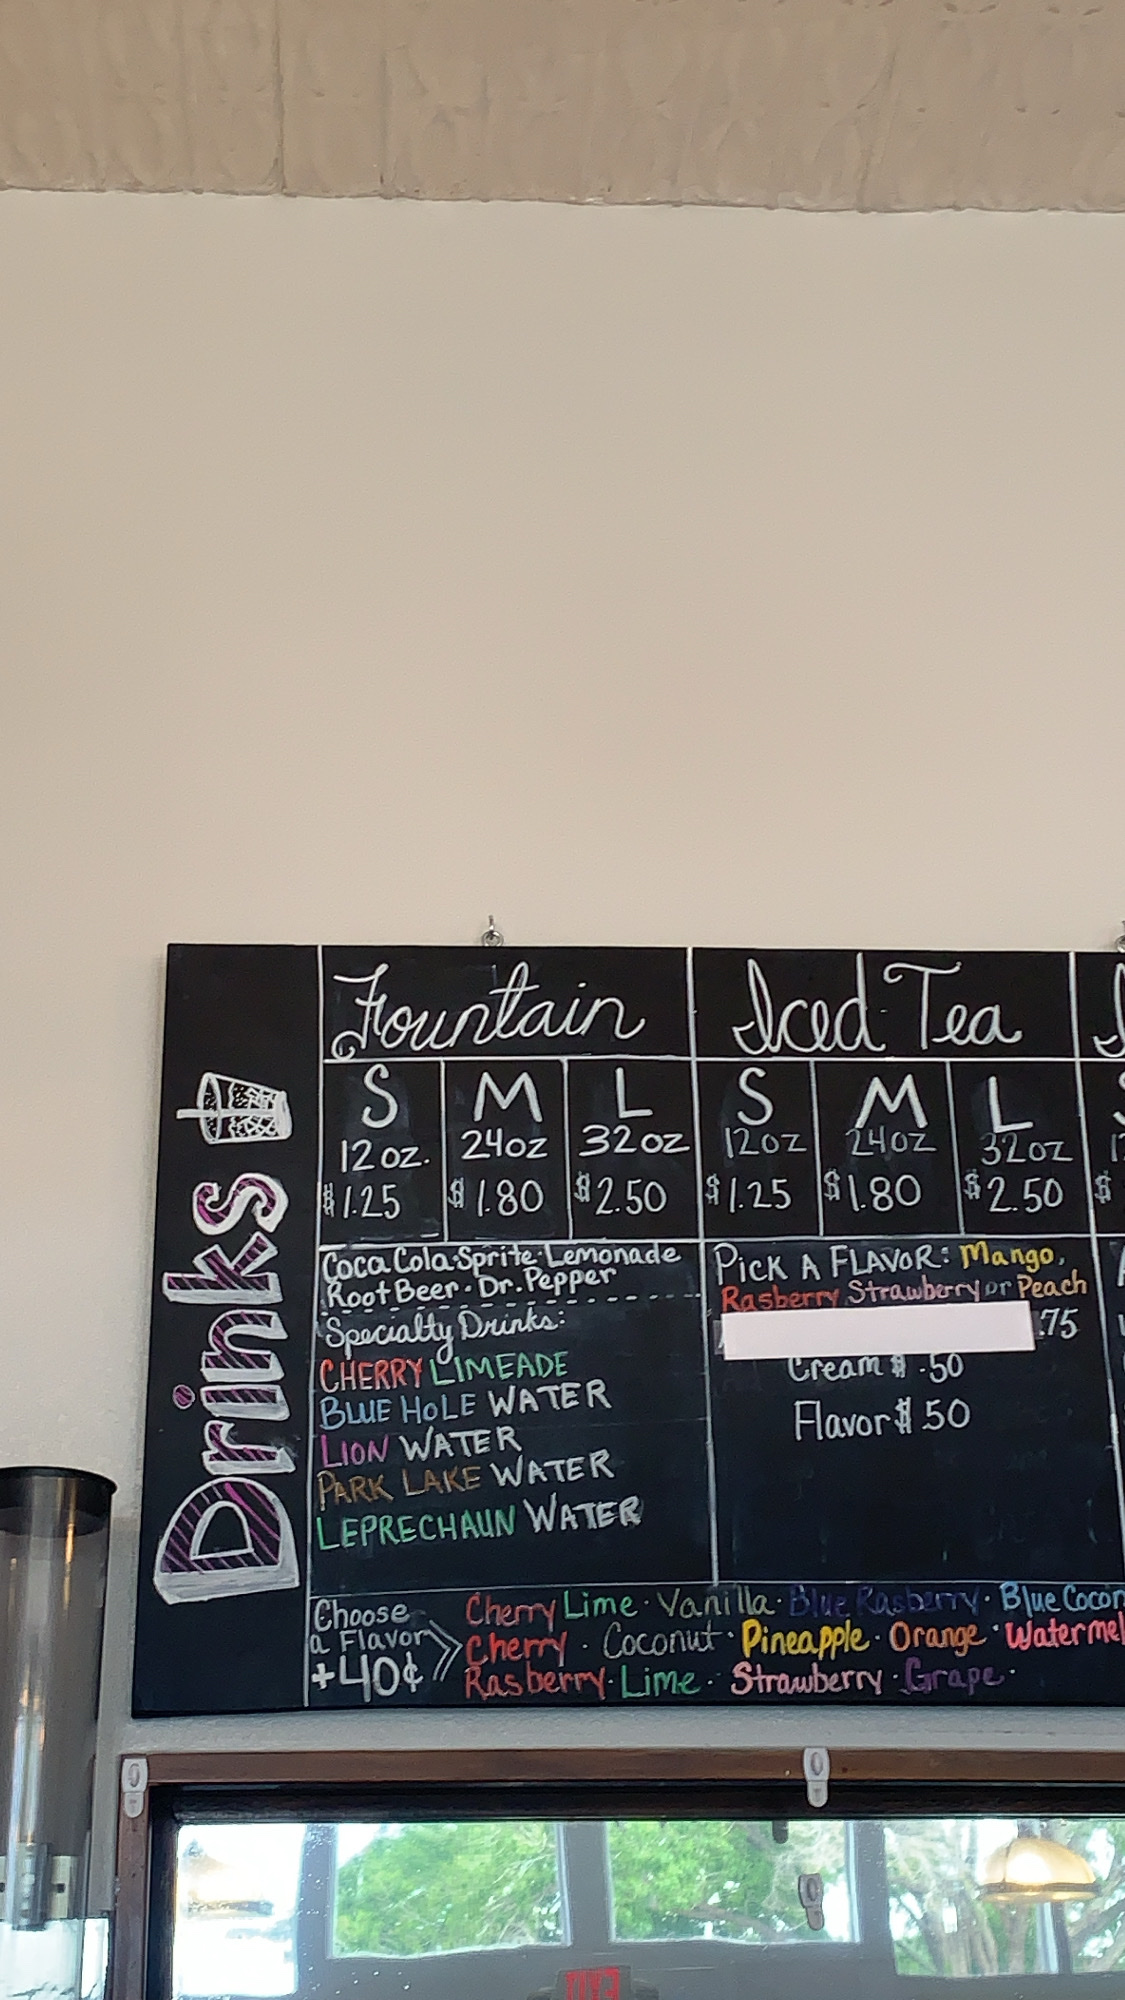 Drinks
Fountain
S M L
12 oz. 24oz 32oz
$1.25 $1.80 $2.50
Coca Cola·Sprite·Lemonade
Root Beer·Dr. Pepper
Specialty Drinks:
CHERRY LIMEADE
BLUE HOLE WATER
LION WATER
PARK LAKE WATER
LEPRECHAUN WATER
Iced Tea
S M L
12oz 24oz 32oz
$1.25 $1.80 $2.50
PICK A FLAVOR: Mango,
Rasberry Strawberry or Peach
.75
Cream $.50
Flavor $.50
Choose
a Flavor
+40¢
Cherry Lime · Vanilla · Blue Rasberry · Blue Cocon
Cherry · Coconut · Pineapple · Orange · Watermel
Rasberry · Lime · Strawberry · Grape ·
EXIT